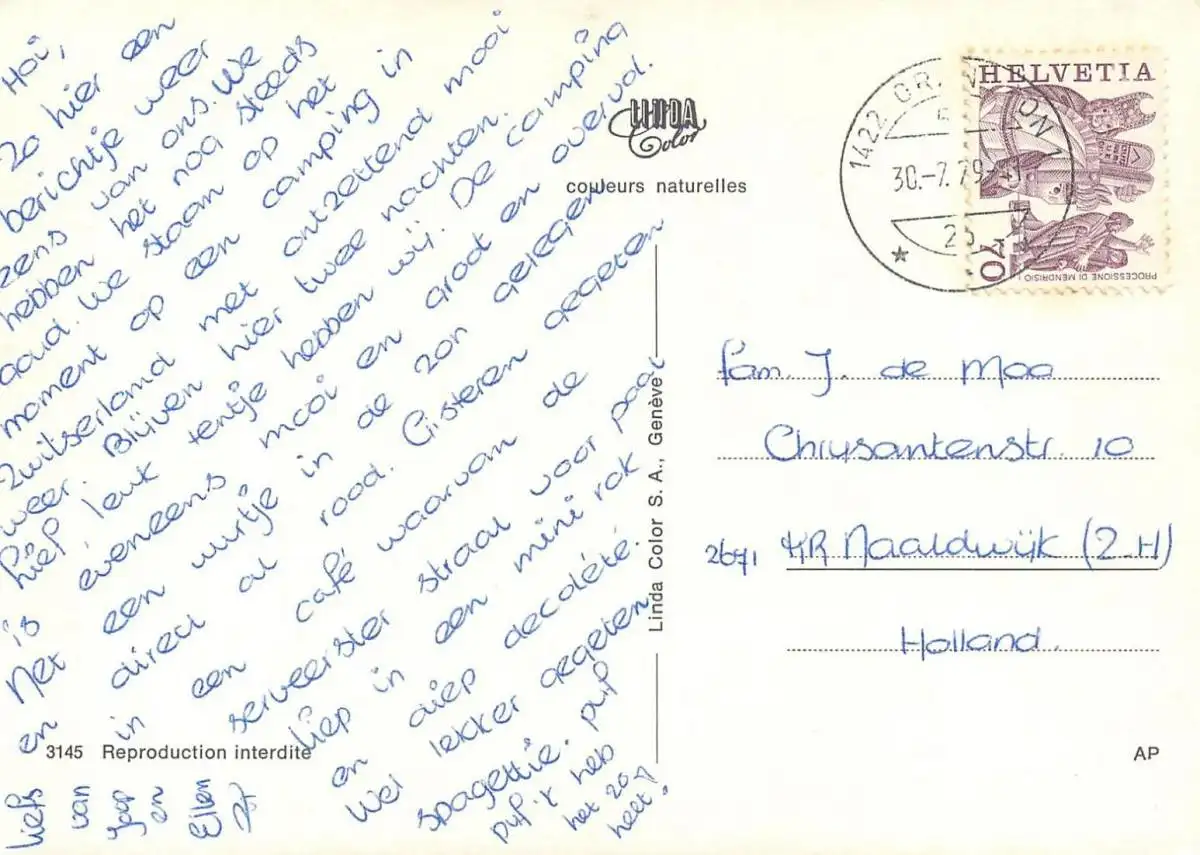 Hoi,
Zo hier een
berichtje weer
eens van ons. We
hebben het nog steeds
goud. We staan op het
moment op een camping in
Zwitserland met ontzettend mooi
weer. Blijven hier twee nachten.
Hiep, leuk tentje hebben wij. De camping
is eveneens mooi en groot en overvol.
Net een uurtje in de zon gelegen
en direct al rood. Gisteren gegeten
in een café waarvan de
serveerster straal voor paal
liep in een mini rok
en diep decoleté.
Wel lekker gegeten
spagettie. puf
puf 'k heb
het zo
heet!
Liefs
van
Jaap
en
Ellen
LINDA
Color
couleurs naturelles
Linda Color S. A., Genève
3145 Reproduction interdite
AP
HELVETIA
70
PROCESSIONE DI MENDRISIO
1422 GR
SON 1
30.-7.79-
Fam. J. de Maa
Chrysantenstr. 10
2671 KR Naaldwijk (Z.H)
Holland.